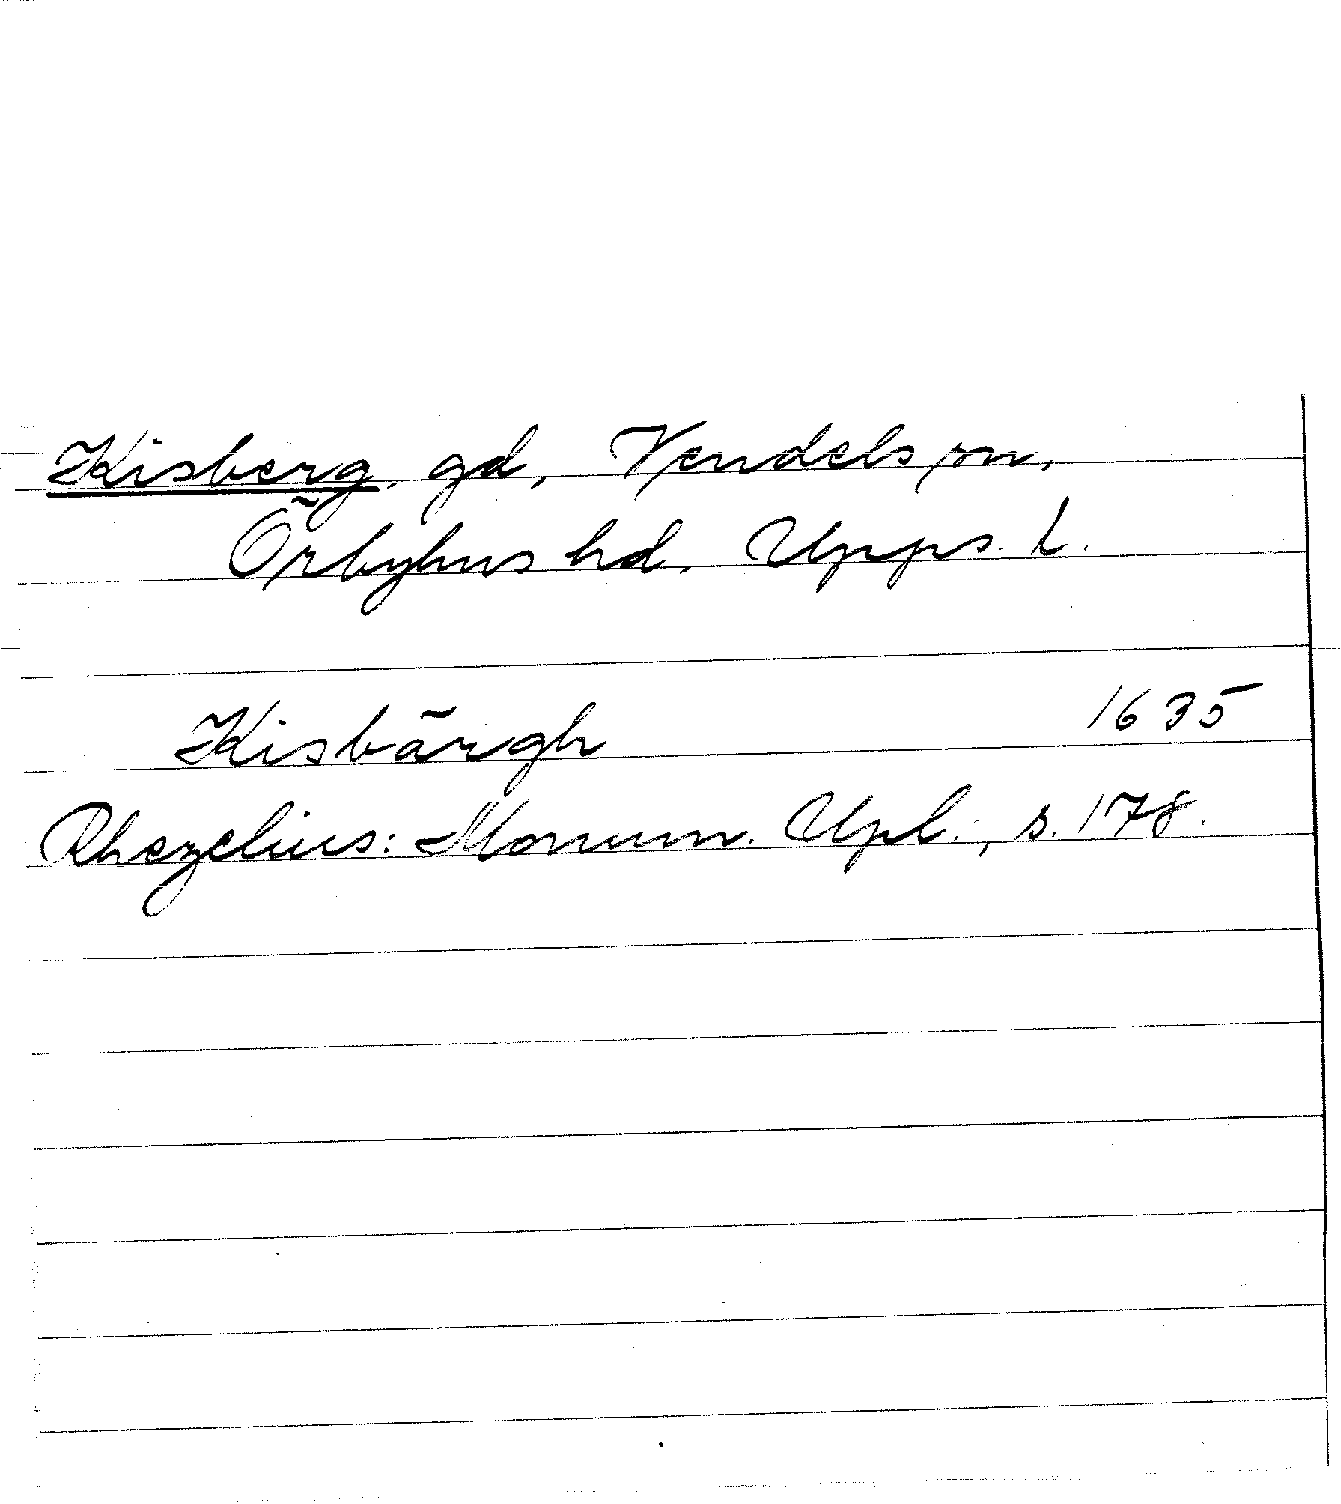 Kisberg, gd, Vendels sn,
Örbyhus hd. Upps. l.
Kisbärgh 1635
Rhezelius: Monum. Upl., s. 178.